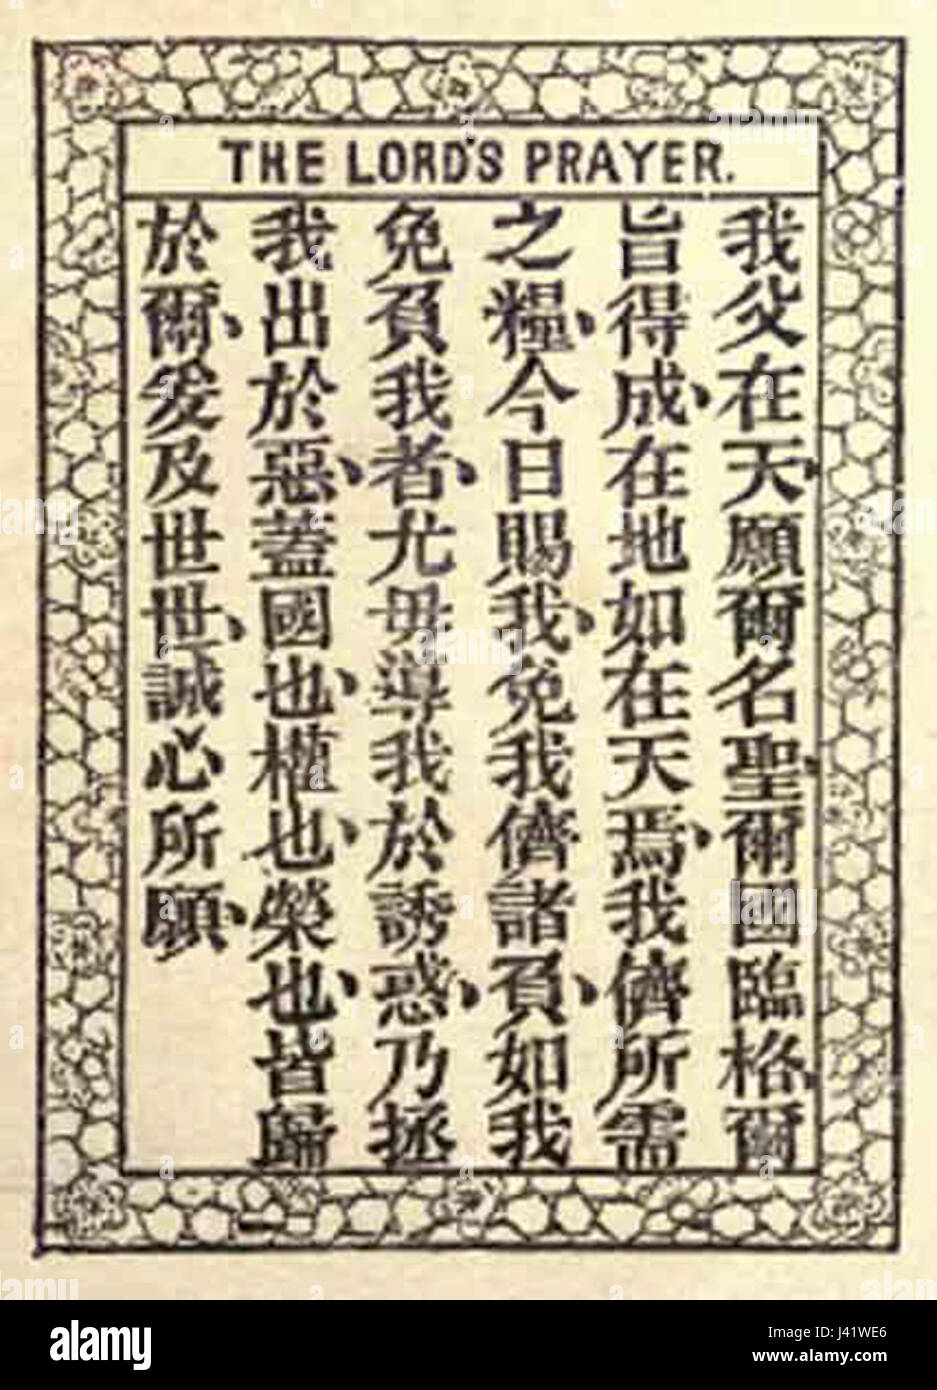 THE LORD'S PRAYER.
我父在天、願爾名聖、爾國臨格、爾
旨得成、在地如在天焉、我儕所需
之糧、今日賜我、免我儕諸負、如我
免負我者、尤毋導我於誘惑、乃拯
我出於惡、蓋國也、權也、榮也、皆歸
於爾、爰及世世、誠心所願、
alamy
Image ID: J41WE6
www.alamy.com